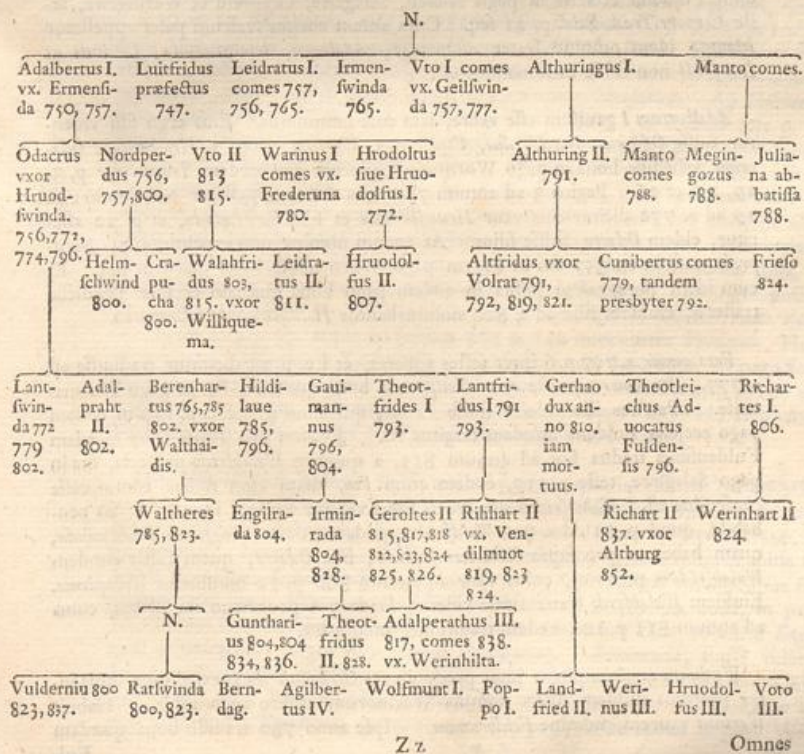 N.
Adalbertus I.
vx. Ermenſi-
da 750, 757.
Luitfridus
præfectus
747.
Leidratus I.
comes 757,
756, 765.
Irmen-
ſwinda
765.
Vto I comes
vx. Geilſwin-
da 757, 777.
Althuringus I.
Manto comes.
Odacrus
vxor
Hruod-
ſwinda.
756, 772,
774, 796.
Nordper-
dus 756,
757, 800.
Vto II
813
815.
Warinus I
comes vx.
Frederuna
780.
Hrodoltus
ſiue Hruo-
dolfus I.
772.
Althuring II.
791.
Manto
comes
788.
Megin-
gozus
788.
Julia-
na ab-
batiſſa
788.
Helm-
ſchwind
800.
Cra-
pu-
cha
800.
Walahfri-
dus 803,
815. vxor
Willique-
ma.
Leidra-
tus II.
811.
Hruodol-
fus II.
807.
Altfridus vxor
Volrat 791,
792, 819, 821.
Cunibertus comes
779, tandem
presbyter 792.
Frieſo
824.
Lant-
ſwin-
da 772
779
802.
Adal-
praht
II.
802.
Berenhar-
tus 765, 785
802. vxor
Walthai-
dis.
Hildi-
laue
785,
796.
Gaui-
man-
nus
796,
804.
Theot-
frides I
793.
Lantfri-
dus I 791
793.
Gerhao
dux an-
no 810.
iam
mor-
tuus.
Theotlei-
chus Ad-
uocatus
Fulden-
ſis 796.
Richar-
tes I.
806.
Waltheres
785, 823.
Engilra-
da 804.
Irmin-
rada
804,
828.
Geroltes II
815, 817, 818
822, 823, 824
825, 826.
Rihhart II
vx. Ven-
dilmuot
819, 823
824.
Richart II
837. vxor
Altburg
852.
Werinhart II
824.
N.
Gunthari-
us 804, 804
834, 836.
Theot-
fridus
II. 828.
Adalperathus III.
817, comes 838.
vx. Werinhilta.
Vulderniu 800
823, 837.
Ratſwinda
800, 823.
Bern-
dag.
Agilber-
tus IV.
Wolfmunt I.
Pop-
po I.
Land-
fried II.
Weri-
nus III.
Hruodol-
fus III.
Voto
III.
Z z
Omnes